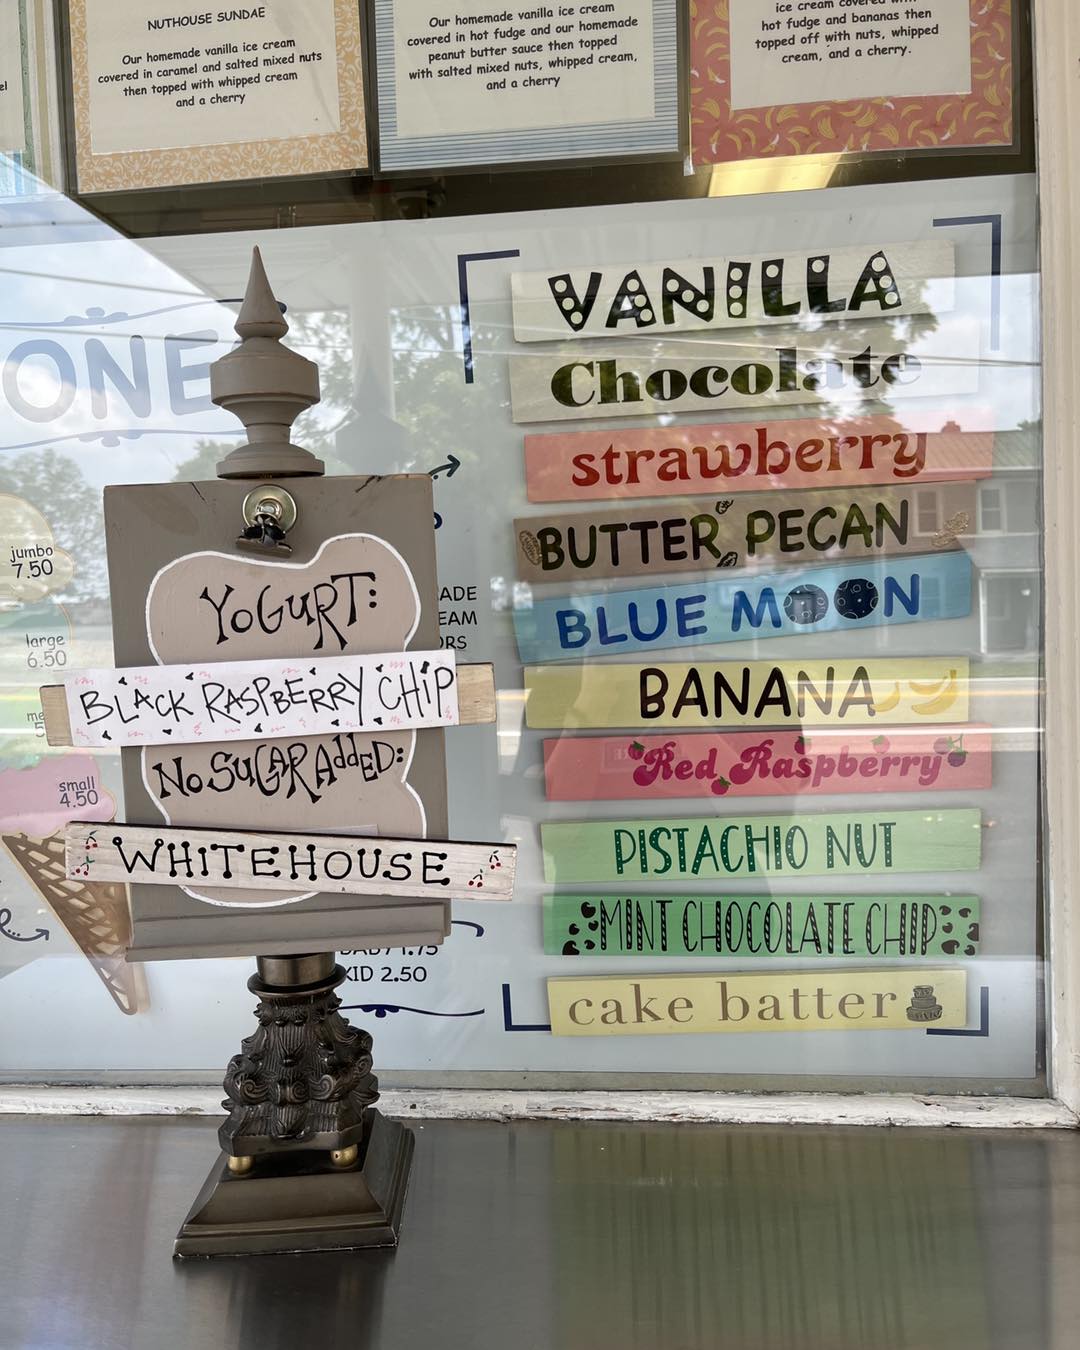 NUTHOUSE SUNDAE
Our homemade vanilla ice cream
covered in caramel and salted mixed nuts
then topped with whipped cream
and a cherry
Our homemade vanilla ice cream
covered in hot fudge and our homemade
peanut butter sauce then topped
with salted mixed nuts, whipped cream,
and a cherry
ice cream covered with
hot fudge and bananas then
topped off with nuts, whipped
cream, and a cherry.
ONE
jumbo
7.50
large
6.50
small
4.50
KID 2.50
YOGURT:
BLACK RASPBERRY CHIP
NO SUGAR AddED:
WHITEHOUSE
VANILLA
Chocolate
strawberry
BUTTER PECAN
BLUE MOON
BANANA
Red Raspberry
PISTACHIO NUT
MINT CHOCOLATE CHIP
cake batter